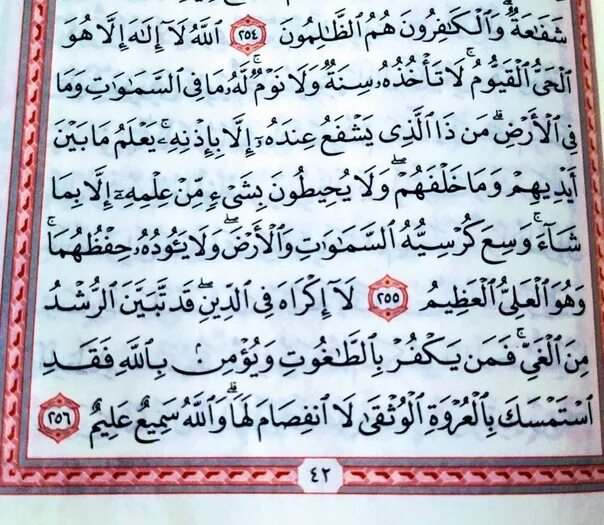 شَفَٰعَةٌ ۗ وَٱلْكَٰفِرُونَ هُمُ ٱلظَّٰلِمُونَ ٢٥٤ ٱللَّهُ لَآ إِلَٰهَ إِلَّا هُوَ
ٱلْحَىُّ ٱلْقَيُّومُ ۚ لَا تَأْخُذُهُۥ سِنَةٌ وَلَا نَوْمٌ ۚ لَّهُۥ مَا فِى ٱلسَّمَٰوَٰتِ وَمَا
فِى ٱلْأَرْضِ ۗ مَن ذَا ٱلَّذِى يَشْفَعُ عِندَهُۥٓ إِلَّا بِإِذْنِهِۦ ۚ يَعْلَمُ مَا بَيْنَ
أَيْدِيهِمْ وَمَا خَلْفَهُمْ ۖ وَلَا يُحِيطُونَ بِشَىْءٍ مِّنْ عِلْمِهِۦٓ إِلَّا بِمَا
شَآءَ ۚ وَسِعَ كُرْسِيُّهُ ٱلسَّمَٰوَٰتِ وَٱلْأَرْضَ ۖ وَلَا يَـُٔودُهُۥ حِفْظُهُمَا ۚ
وَهُوَ ٱلْعَلِىُّ ٱلْعَظِيمُ ٢٥٥ لَآ إِكْرَاهَ فِى ٱلدِّينِ ۖ قَد تَّبَيَّنَ ٱلرُّشْدُ
مِنَ ٱلْغَىِّ ۚ فَمَن يَكْفُرْ بِٱلطَّٰغُوتِ وَيُؤْمِنۢ بِٱللَّهِ فَقَدِ
ٱسْتَمْسَكَ بِٱلْعُرْوَةِ ٱلْوُثْقَىٰ لَا ٱنفِصَامَ لَهَا ۗ وَٱللَّهُ سَمِيعٌ عَلِيمٌ ٢٥٦
٤٢